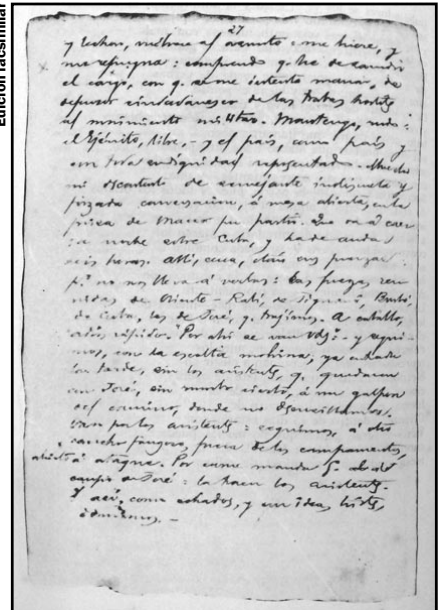 Edición facsimilar
27
y echan, y me hiere, y
me repugna: comprendo q. he de sacudir
el cargo, con q. se me intenta marcar, de
defensor ciudadanesco de las trabas hostiles
al movimiento militar. Mantengo, rudo:
el Ejército, libre, - y el país, como país y
con toda su dignidad representado. Muestro
mi descontento de semejante indiscreta y
forzada conversación, á mesa abierta, en la
prisa de Maceo por partir. Que va á caer
la noche sobre Cuba, y ha de andar
seis horas. Allí, cerca, están sus fuerzas:
p.º no nos lleva á verlas: las fuerzas reu-
nidas de Oriente - Rabí, de Jiguaní, Busto,
de Cuba, las de José, q. trajimos. A caballo,
adiós rápido. "Por ahí se van Vds" - y segui-
mos, con la escolta mohína, ya entrada
la tarde, sin los asistentes, q. quedaron
con José, sin rumbo cierto, á un galpón
del camino, donde no desensillamos.
Van por los asistentes: seguimos, á otro
rancho fangoso, fuera de los campamentos,
abierto á ataque. Por carne manda G. al
campo de José: la traen los asistentes.
Y así, como echados, y con ideas tristes,
dormimos. -